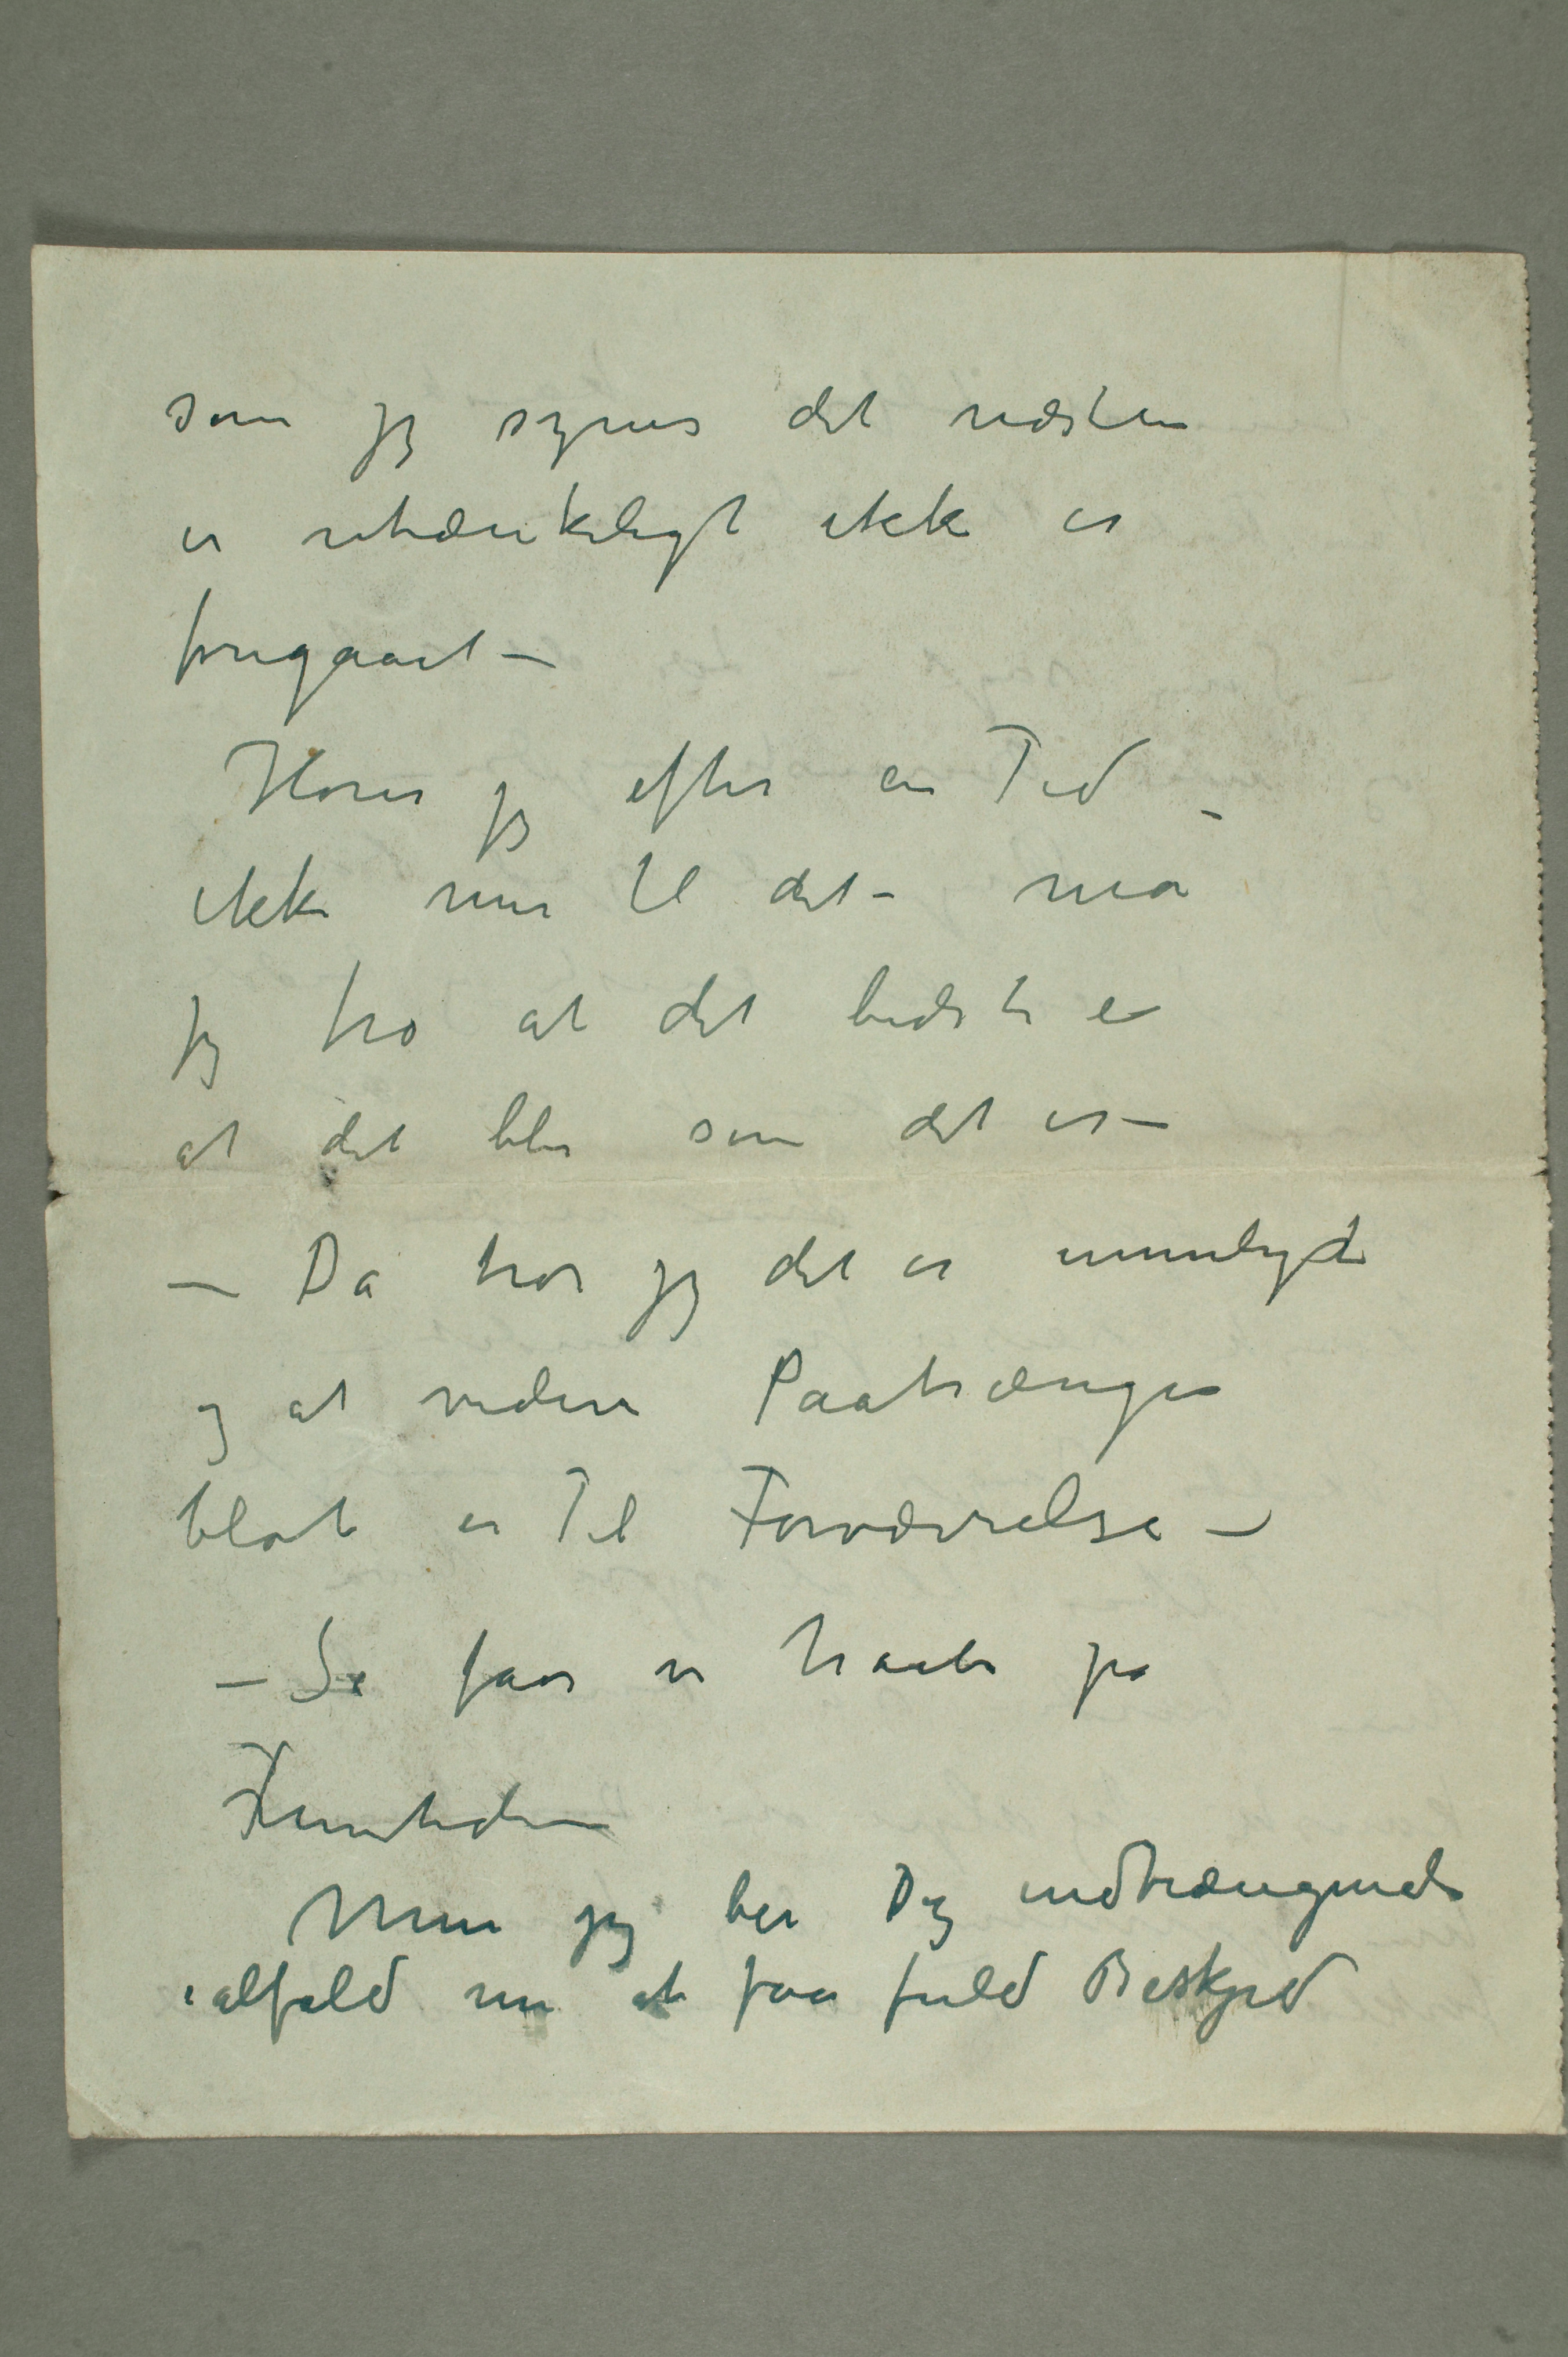 som jeg synes det næsten
er utænkeligt ikke er
foregaaet –
Hører jeg efter en Tid –
ikke mer til det – må
jeg tro at det bedste er
at det blir som det er –
– Da tror jeg det er umuligt
og at videre Paatrængen
blot er Til Forværrelse –
– Så faar vi haabe på
Fremtiden
Men jeg ber Dig indtrængende
ialfald nu at faa fuld Beskjed